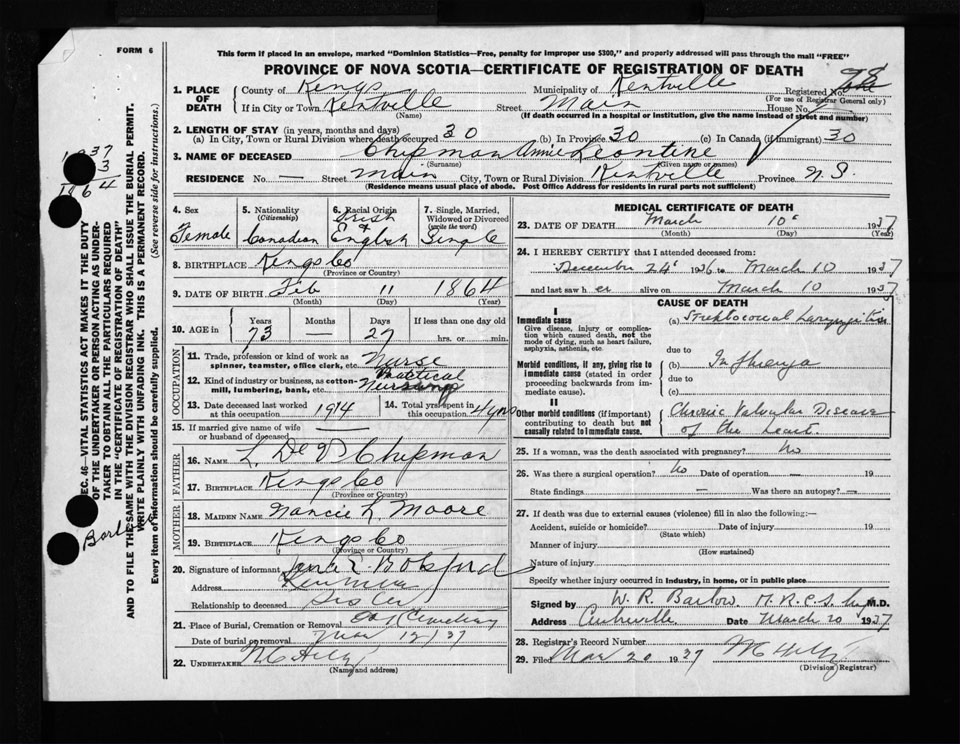 FORM 6
This form if placed in an envelope, marked "Dominion Statistics—Free, penalty for improper use $300," and properly addressed will pass through the mail "FREE"
PROVINCE OF NOVA SCOTIA—CERTIFICATE OF REGISTRATION OF DEATH
1. PLACE OF DEATH
County of Kings Municipality of Kentville Registered No.
(For use of Registrar General only)
If in City or Town Kentville Street Main House No.
(Name) (If death occurred in a hospital or institution, give the name instead of street and number)
2. LENGTH OF STAY (in years, months and days)
(a) In City, Town or Rural Division where death occurred 30 (b) In Province 30 (c) In Canada (if immigrant) 30
3. NAME OF DECEASED Chipman Annie Leontine
(Surname) (Given name or names)
RESIDENCE No. — Street Main City, Town or Rural Division Kentville Province N.S
(Residence means usual place of abode. Post Office Address for residents in rural parts not sufficient)
4. Sex Female
5. Nationality (Citizenship) Canadian
6. Racial Origin Irish & English
7. Single, Married, Widowed or Divorced (write the word) Single
8. BIRTHPLACE Kings Co
(Province or Country)
9. DATE OF BIRTH Feb 11 1864
(Month) (Day) (Year)
10. AGE in Years Months Days If less than one day old
73 — 27 hrs. or min.
OCCUPATION
11. Trade, profession or kind of work as spinner, teamster, office clerk, etc. Nurse
12. Kind of industry or business, as cotton-mill, lumbering, bank, etc. Practical Nursing
13. Date deceased last worked at this occupation 1914
14. Total yrs. spent in this occupation 4 yrs
15. If married give name of wife or husband of deceased
FATHER
16. Name L. De V Chipman
17. Birthplace Kings Co
(Province or Country)
MOTHER
18. Maiden Name Nancie L. Moore
19. Birthplace Kings Co
(Province or Country)
20. Signature of informant Botsford
Address
Relationship to deceased Sister
21. Place of Burial, Cremation or Removal Cemetery
Date of burial or removal Mar 12/37
22. UNDERTAKER
(Name and address)
MEDICAL CERTIFICATE OF DEATH
23. DATE OF DEATH March 10 1937
(Month) (Day) (Year)
24. I HEREBY CERTIFY that I attended deceased from:
December 24 1936 to March 10 1937
and last saw her alive on March 10 1937
CAUSE OF DEATH
I
Immediate cause
Give disease, injury or complication which caused death, not the mode of dying, such as heart failure, asphyxia, asthenia, etc.
(a) Streptococcal Laryngitis
due to
Morbid conditions, if any, giving rise to immediate cause (stated in order proceeding backwards from immediate cause).
(b) Influenza
due to
(c)
II
Other morbid conditions (if important) contributing to death but not causally related to immediate cause.
Chronic Valvular Disease
of the heart.
25. If a woman, was the death associated with pregnancy? No
26. Was there a surgical operation? No Date of operation — 19
State findings Was there an autopsy? —
27. If death was due to external causes (violence) fill in also the following:—
Accident, suicide or homicide? Date of injury 19
(State which)
Manner of injury
(How sustained)
Nature of injury
Specify whether injury occurred in industry, in home, or in public place
Signed by W. R. Barlow. M.D.
Address Centreville. Date March 20 1937
28. Registrar's Record Number
29. Filed Mar 20 1937
(Division Registrar)
SEC. 46—VITAL STATISTICS ACT MAKES IT THE DUTY OF THE UNDERTAKER OR PERSON ACTING AS UNDERTAKER TO OBTAIN ALL THE PARTICULARS REQUIRED IN THE "CERTIFICATE OF REGISTRATION OF DEATH" AND TO FILE THE SAME WITH THE DIVISION REGISTRAR WHO SHALL ISSUE THE BURIAL PERMIT.
WRITE PLAINLY WITH UNFADING INK. THIS IS A PERMANENT RECORD.
Every item of information should be carefully supplied. (See reverse side for instructions.)
1937
73
1864